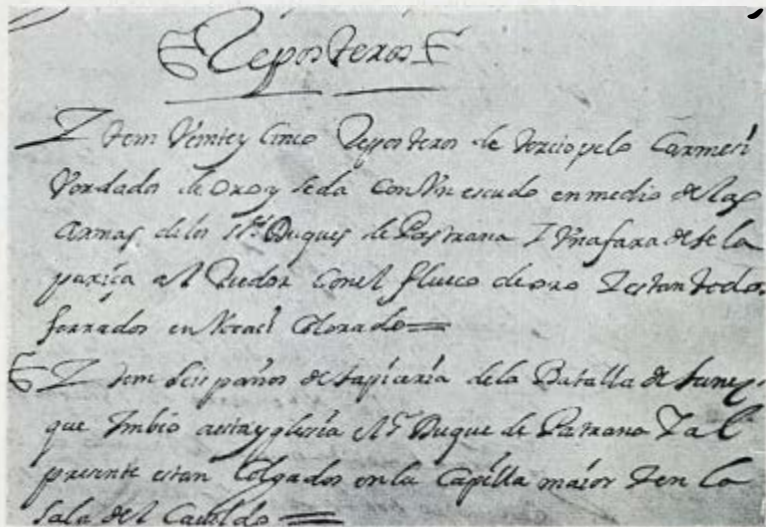 Reposteros
Item Veinte y Cinco Reposteros de terciopelo Carmesi
Vordados de oro y seda Con Un escudo en medio de las
Armas de los SSres Duques de Pastrana I Una faxa de tela
pariça al Ruedor Con el flueco de oro I estan todos
forrados en Colorado
Item seis paños de tapiceria de la Batalla de tunez
que Imbio a esta yglesia el Sr Duque de Patrana I al
presente estan Colgados en la Capilla maior I en la
Sala del Cavildo